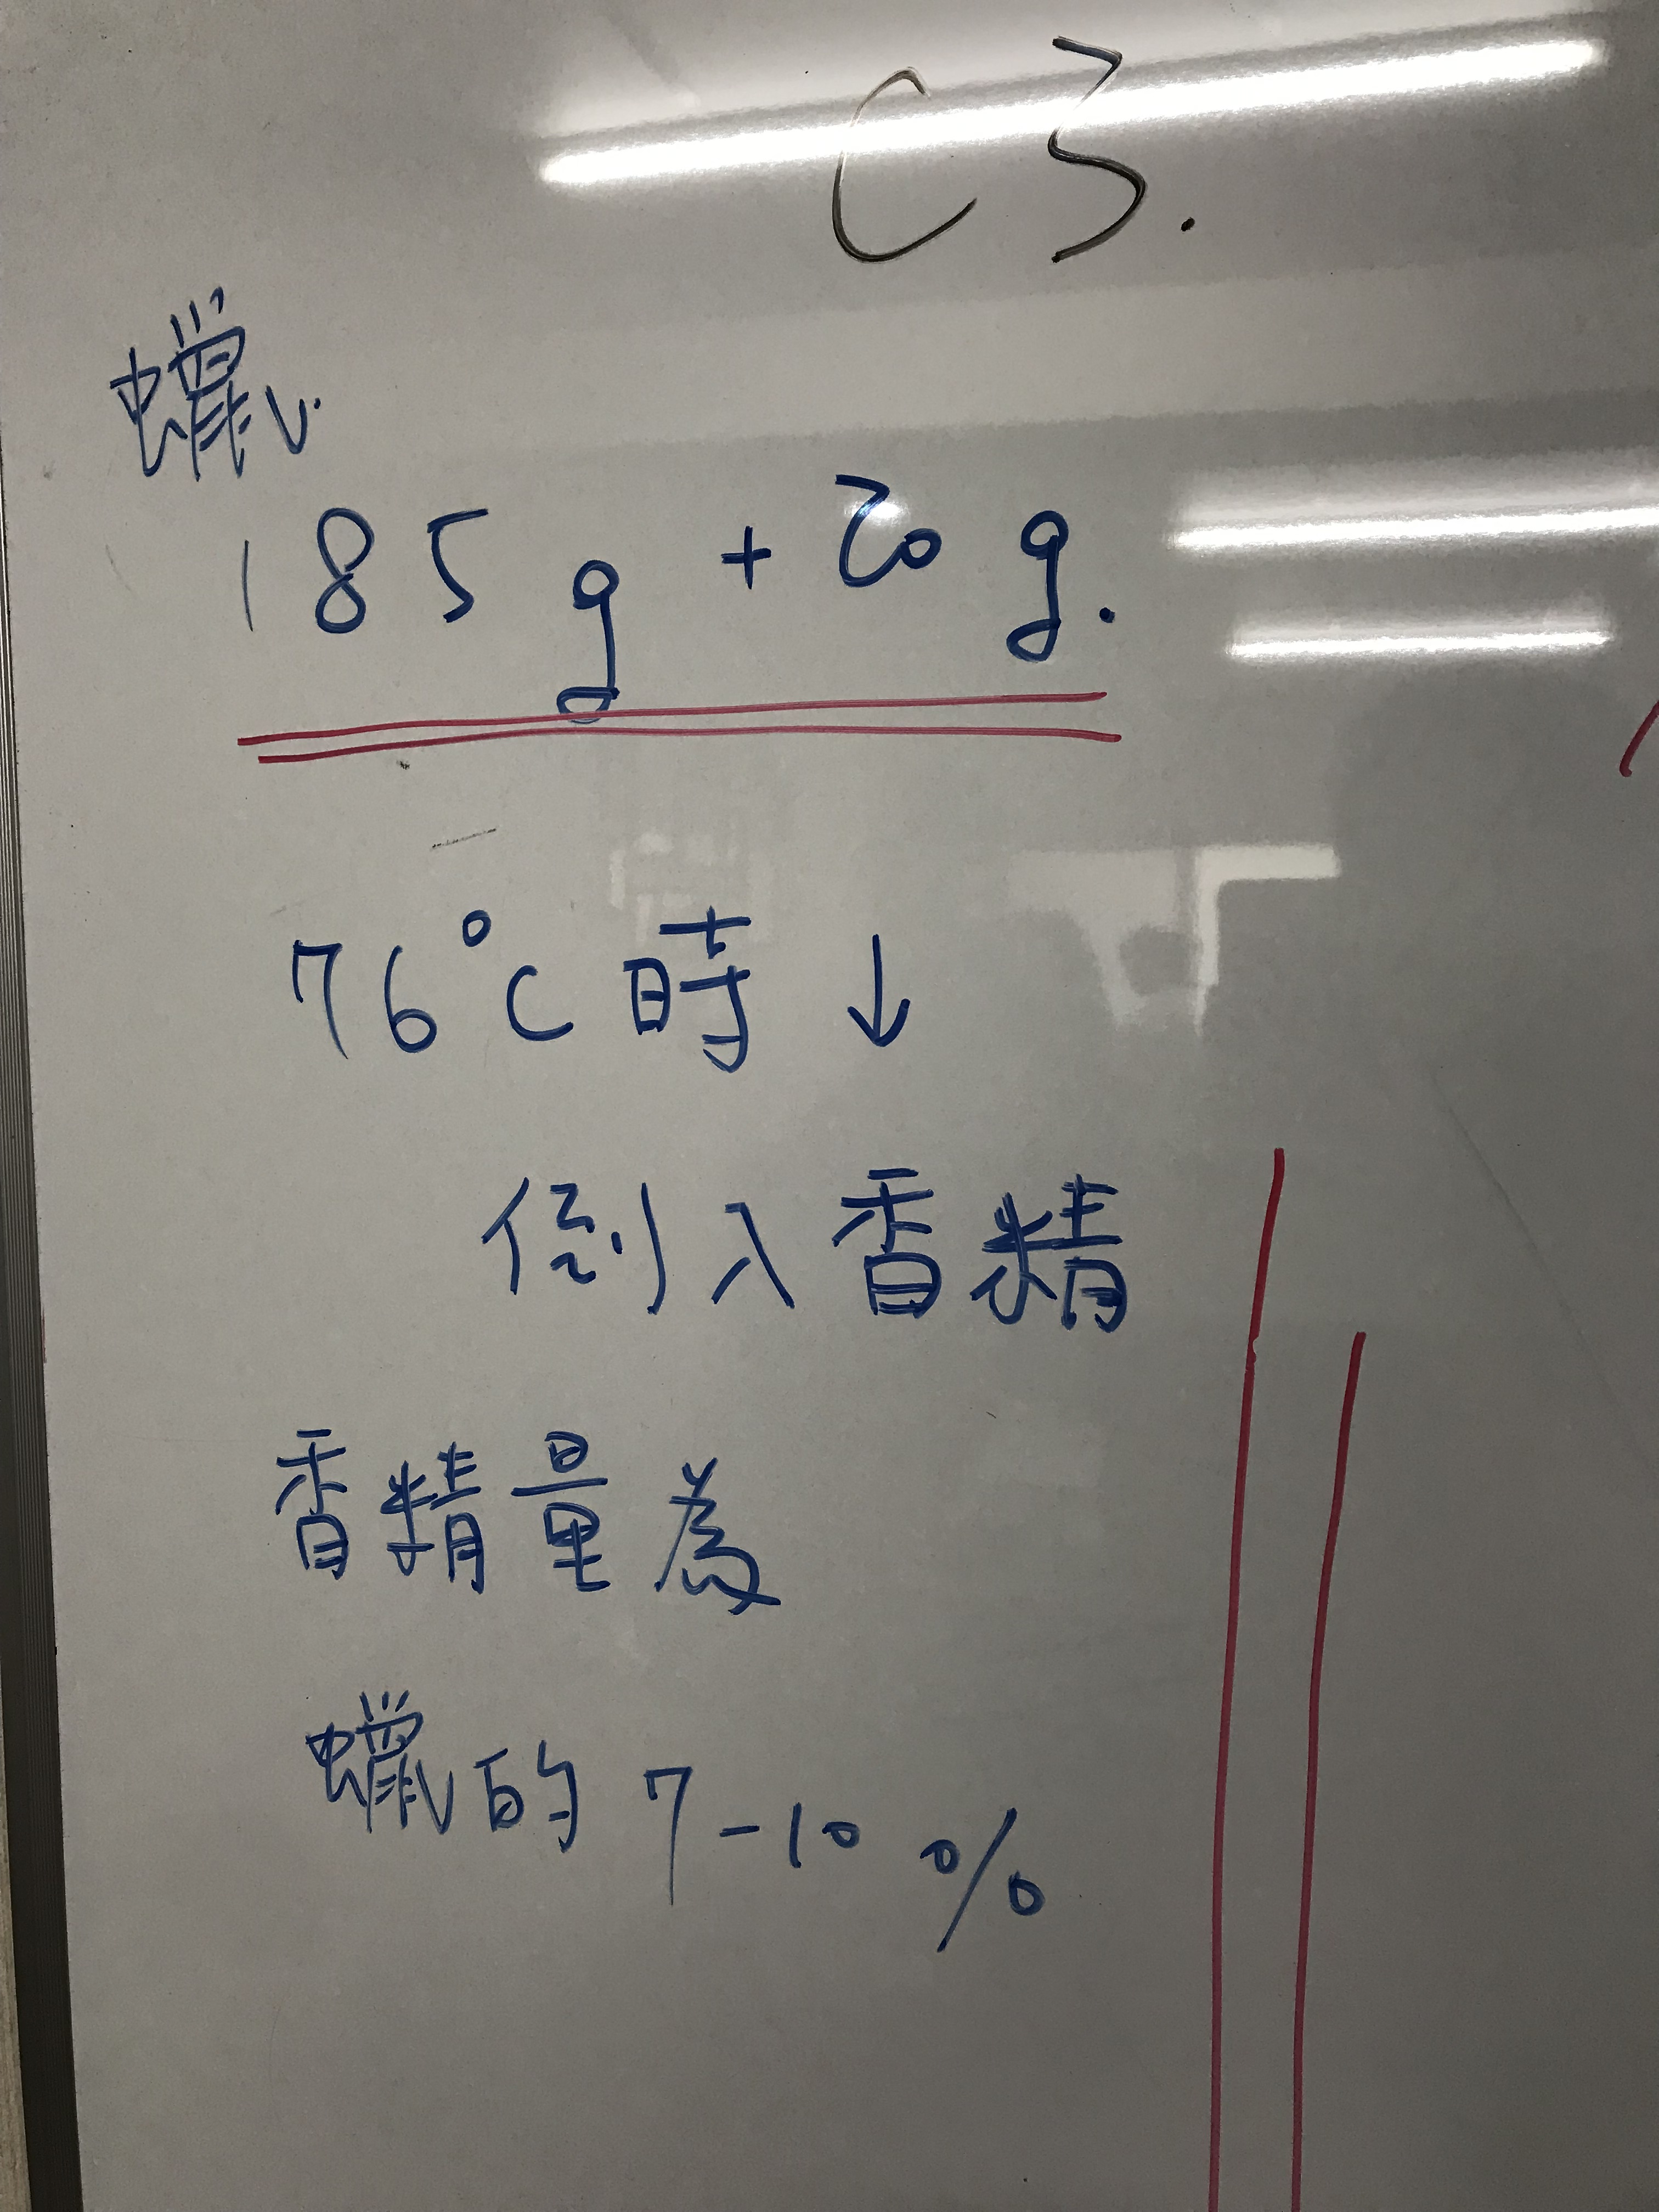 C3.
蠟
185g + 20g.
76°C時↓
倒入香精
香精量為
蠟的7-10%